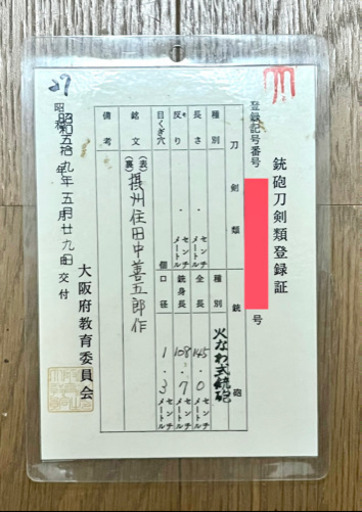 銃砲刀剣類登録証
登録記号番号 号
刀剣類 銃砲
種別 種別 火なわ式銃砲
長さ ・ センチメートル 全長 145・0 センチメートル
反り ・ センチメートル 銃身長 108・7 センチメートル
目くぎ穴 個 口径 1・3 センチメートル
銘文 (表)(裏) 摂州住田中善五郎作
備考
昭和五拾九年五月廿九日交付
大阪府教育委員会